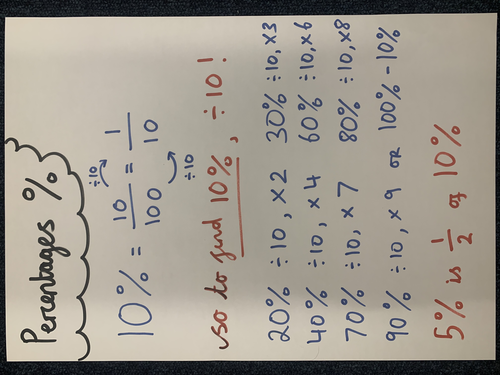 Percentages %
÷10
10% = 10/100 = 1/10
÷10
so to find 10%, ÷10!
20% ÷10, ×2 30% ÷10, ×3
40% ÷10, ×4 60% ÷10, ×6
70% ÷10, ×7 80% ÷10, ×8
90% ÷10, ×9 OR 100% - 10%
5% is 1/2 of 10%